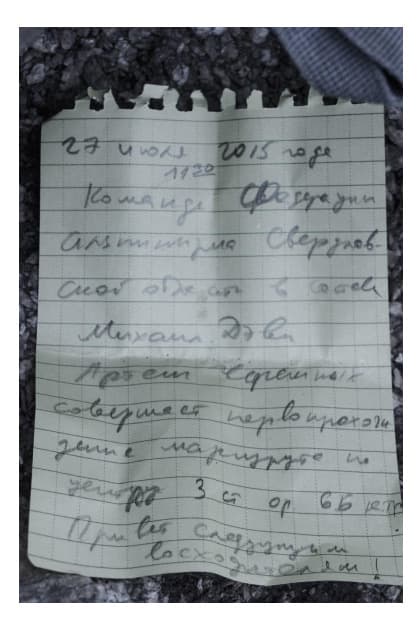 27 июля 2015 года
11 20
Команда Федерации
альпинизма Свердлов-
ской области в составе
Михаил Дэви
Артём Черемных
совершает первопрохож
дение маршрута по
центру 3 ст ор 6Б к.тр.
Привет следующим
восходителям!